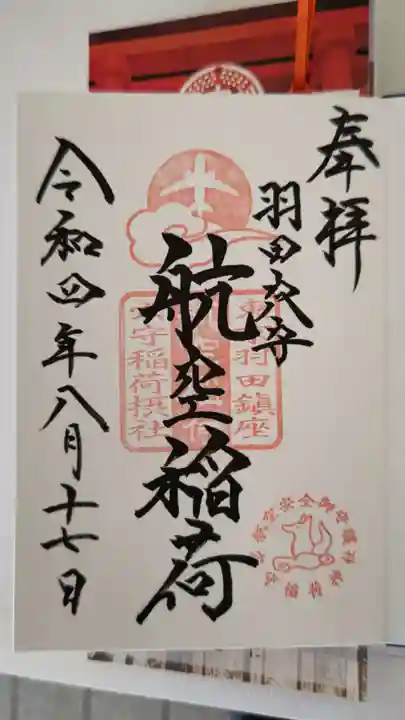 奉拝
羽田穴守
航空稲荷
令和四年八月十七日
羽田鎮座
守稲荷摂社